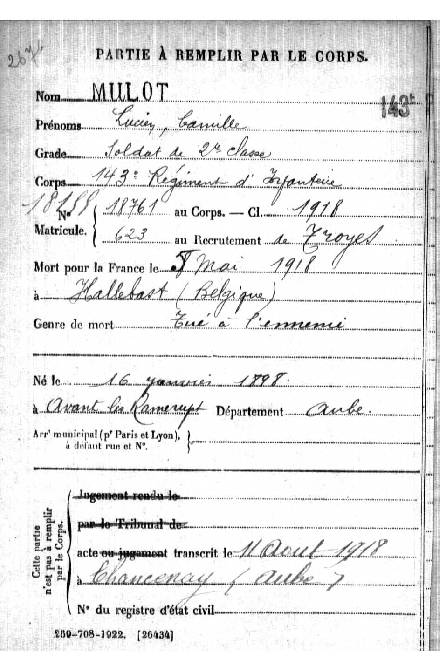 PARTIE À REMPLIR PAR LE CORPS.
Nom MULOT
143e
Prénoms Lucien, Camille
Grade Soldat de 2e Classe
Corps 143e Régiment d'Infanterie
N° 18761 au Corps. — Cl. 1918
Matricule. 623 au Recrutement de Troyes
Mort pour la France le 5 Mai 1918
à Hallebast (Belgique)
Genre de mort Tué à l'ennemi
Né le 16 janvier 1898
à Avant les Ramerupt Département Aube.
Arr' municipal (p' Paris et Lyon),
à défaut rue et N°.
Cette partie
n'est pas à remplir
par le Corps.
Jugement rendu le
par le Tribunal de
acte ou jugement transcrit le 11 Aout 1918
à Chancenay (Aube)
N° du registre d'état civil
259-708-1922. [26434]